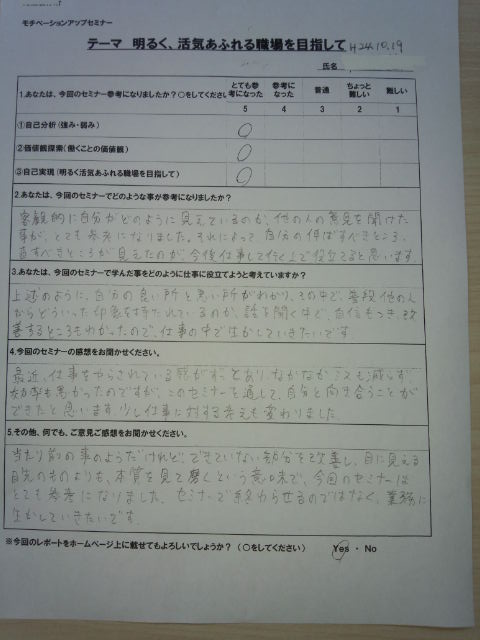 モチベーションアップセミナー
テーマ 明るく、活気あふれる職場を目指して H24.10.19
氏名
1.あなたは、今回のセミナー参考になりましたか?○をしてください
とても参考になった 参考になった 普通 ちょっと難しい 難しい
5 4 3 2 1
①自己分析(強み・弱み)
②価値観探索(働くことの価値観)
③自己実現(明るく活気あふれる職場を目指して)
2.あなたは、今回のセミナーでどのような事が参考になりましたか?
客観的に自分がどのように見えているのか、他の人の意見を聞けた
事が、とても参考になりました。それによって、自分の伸ばすべきところ、
直すべきところが見えたのが、今後仕事して行く上で役立てると思います
3.あなたは、今回のセミナーで学んだ事をどのように仕事に役立てようと考えていますか?
上述のように、自分の良い所と悪い所がわかり、その中で、普段他の人
からどういった印象を持たれているのか、話を聞く中で、自信もつき、改
善するところもわかったので、仕事の中で生かしていきたいです
4.今回のセミナーの感想をお聞かせください。
最近、仕事をやらされている感がずっとあり、なかなか ミスも減らず
効率も悪かったのですが、このセミナーを通して、自分と向き合うことが
できたと思います。少し仕事に対する考えも変わりました。
5.その他、何でも、ご意見ご感想をお聞かせください。
当たり前の事のようだけれど、できていない部分を改善し、目に見える
目先のものよりも、本質を見て磨くという意味で、今回のセミナーは
とても参考になりました。セミナーで終わらせるのではなく、業務に
生かしていきたいです。
※今回のレポートをホームページ上に載せてもよろしいでしょうか? (○をしてください) Yes ・ No